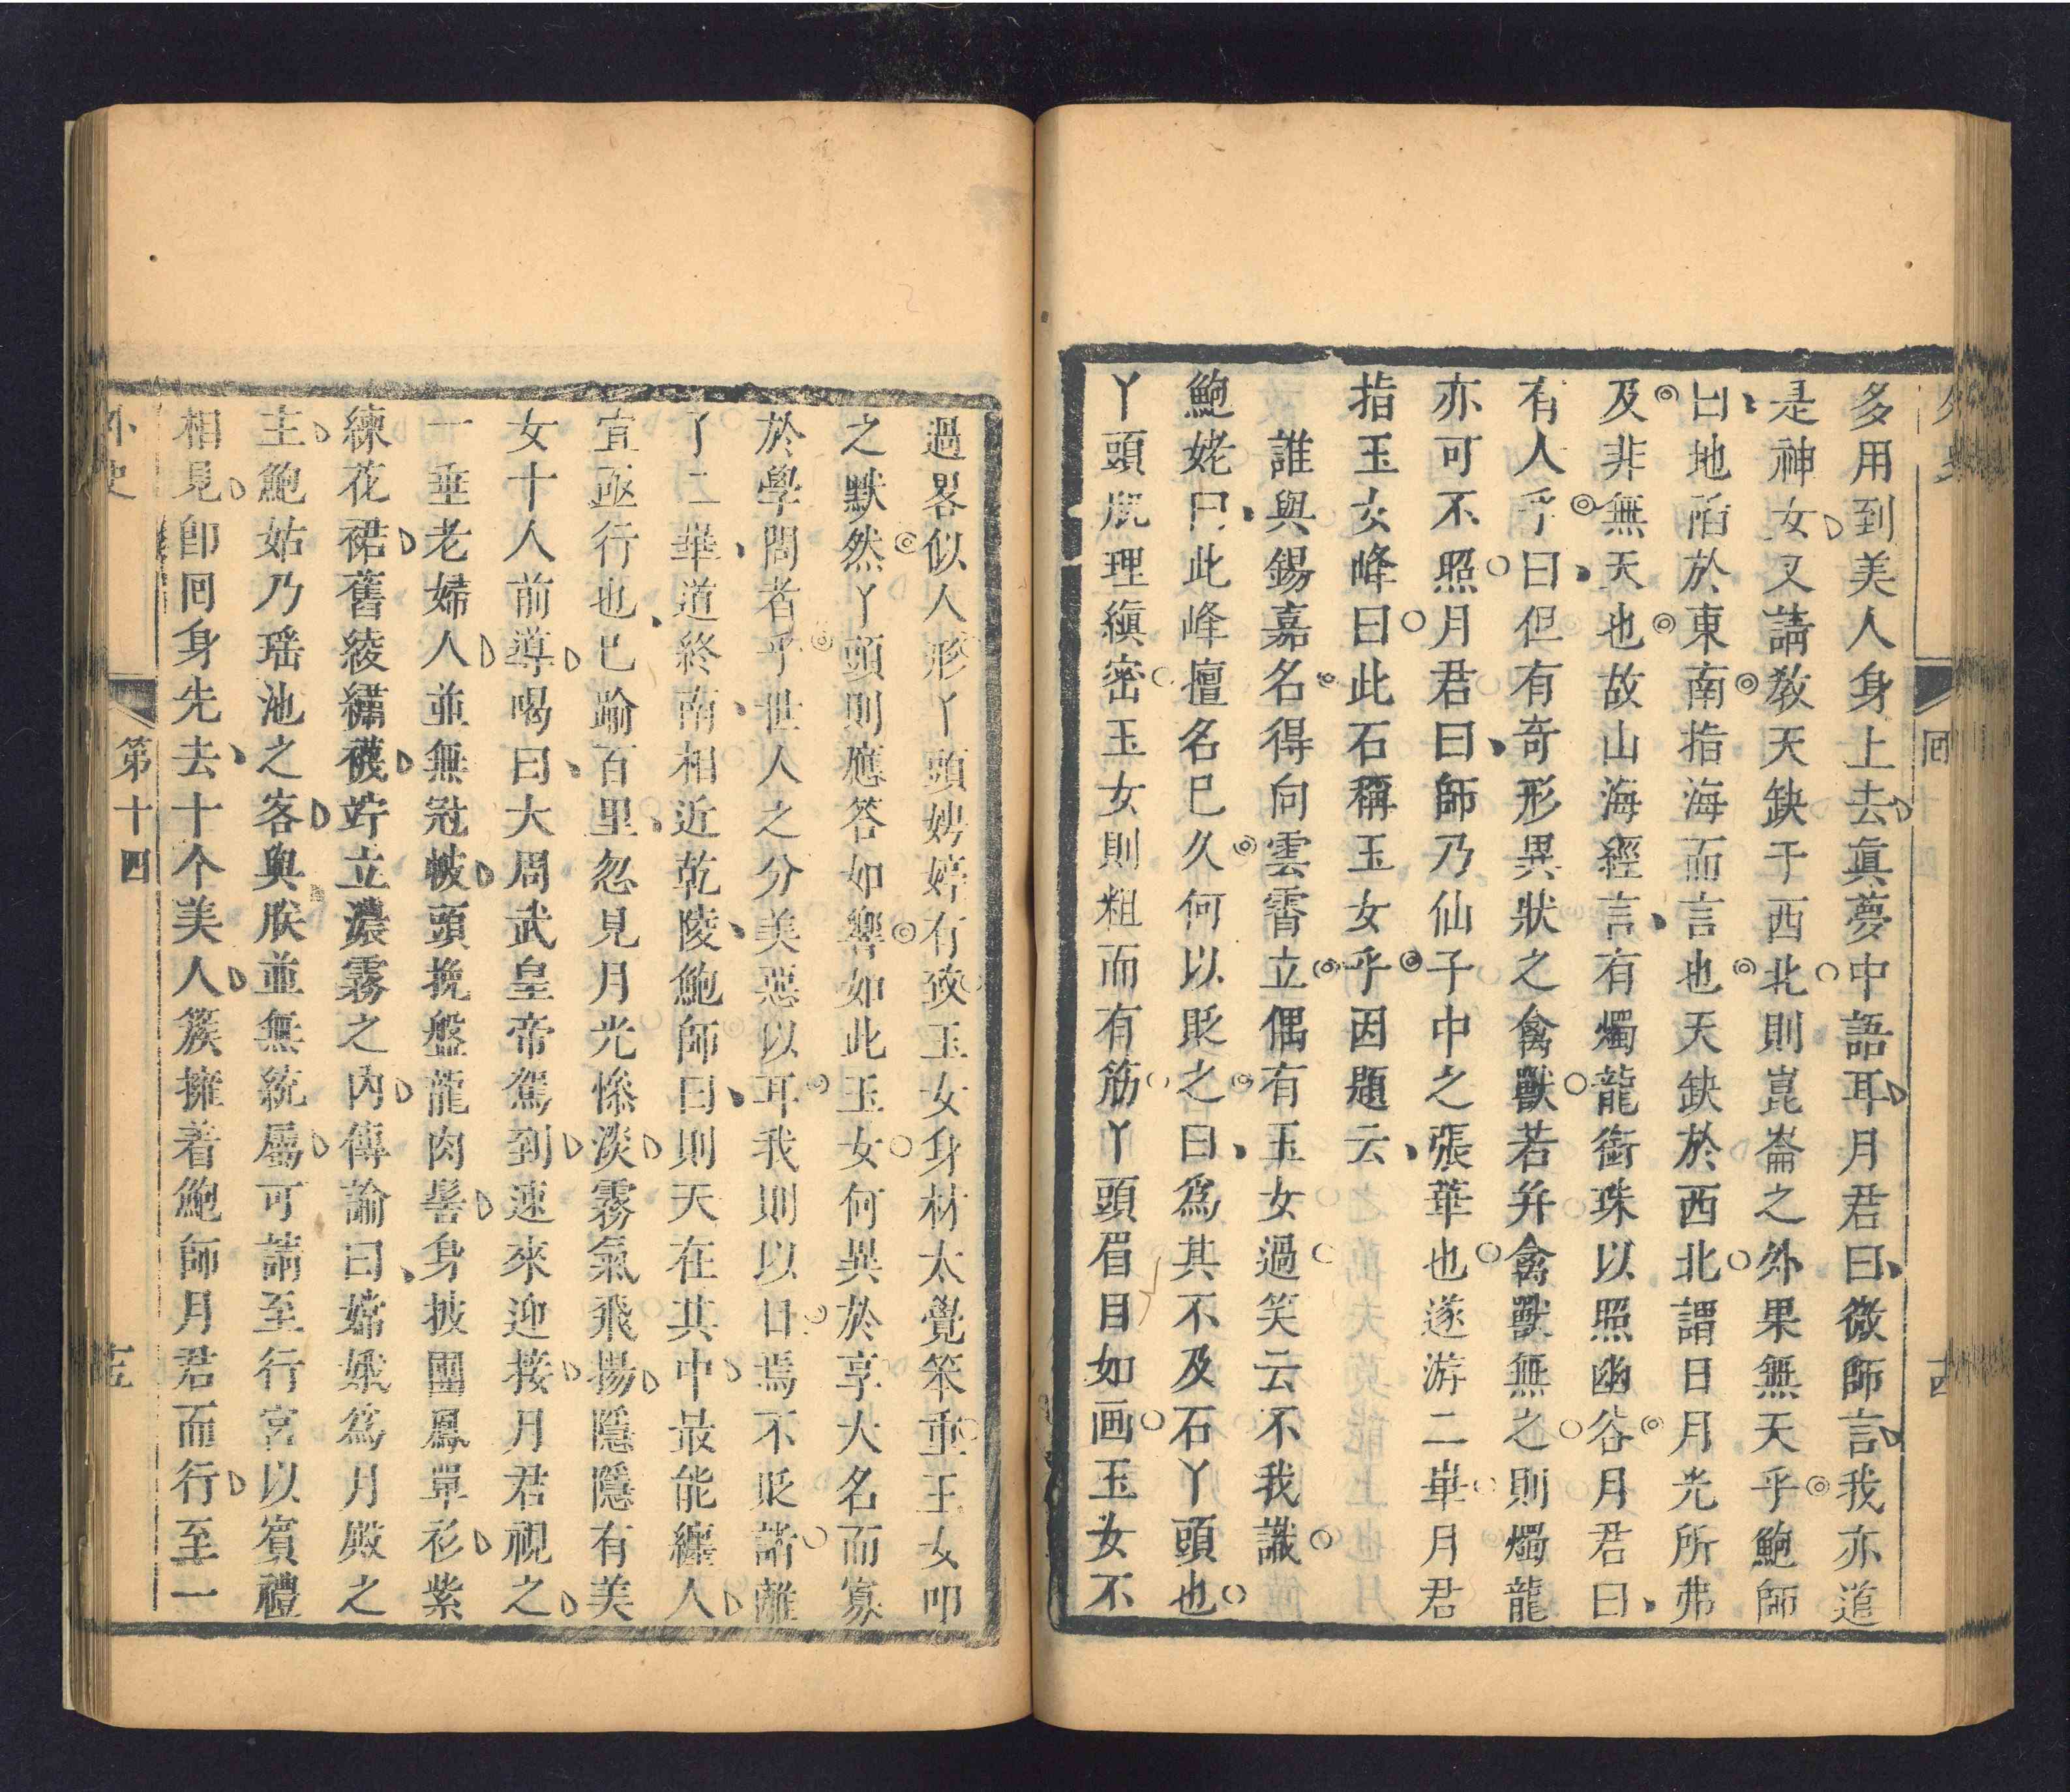 多用到美人身上去眞夢中語耳月君曰微師言我亦道
是神女又請敎天缺于西北則崑崙之外果無天乎鮑師
曰地陷於東南指海而言也天缺於西北謂日月光所弗
及非無天也故山海經言有燭龍銜珠以照幽谷月君曰
有人乎曰但有奇形異狀之禽獸若并禽獸無之則燭龍
亦可不照月君曰師乃仙子中之張華也遂游二華月君
指玉女峰曰此石稱玉女乎因題云
誰與錫嘉名得向雲霄立偶有玉女過笑云不我識
鮑姥曰此峰擅名巳久何以貶之曰爲其不及石丫頭也
丫頭㞘理縝密玉女則粗而有筋丫頭眉目如画玉女不
過畧似人形丫頭娉婷有致玉女身材太覺笨重玉女叩
之默然丫頭則應答如響如此玉女何異於享大名而寡
於學問者乎世人之分美惡以耳我則以目焉不貶諸離
了二華道終南相近乾陵鮑師曰則天在其中最能纏人
宜亟行也巳踰百里忽見月光慘淡霧氣飛揚隱隱有美
女十人前導喝曰大周武皇帝駕到速來迎接月君視之
一垂老婦人並無冠帔頭挽盤龍肉髻身披團鳳單衫紫
練花裙舊綾繡襪竚立濃霧之內傳諭曰嫦娥爲月殿之
主鮑姑乃瑶池之客與朕並無統屬可請至行宮以賓禮
相見卽囘身先去十个美人簇擁着鮑師月君而行至一
外史
第十四